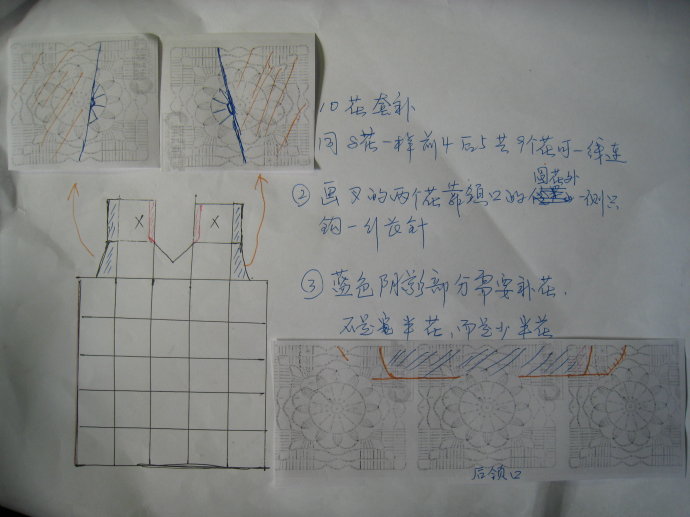 10花套补
同8花一样前4后5共9个花可一线连
②画叉的两个花靠领口的圆花外一侧只
钩一针长针
③蓝色阴影部分需要补花.
不是半花,而是少半花
X
X
后领口